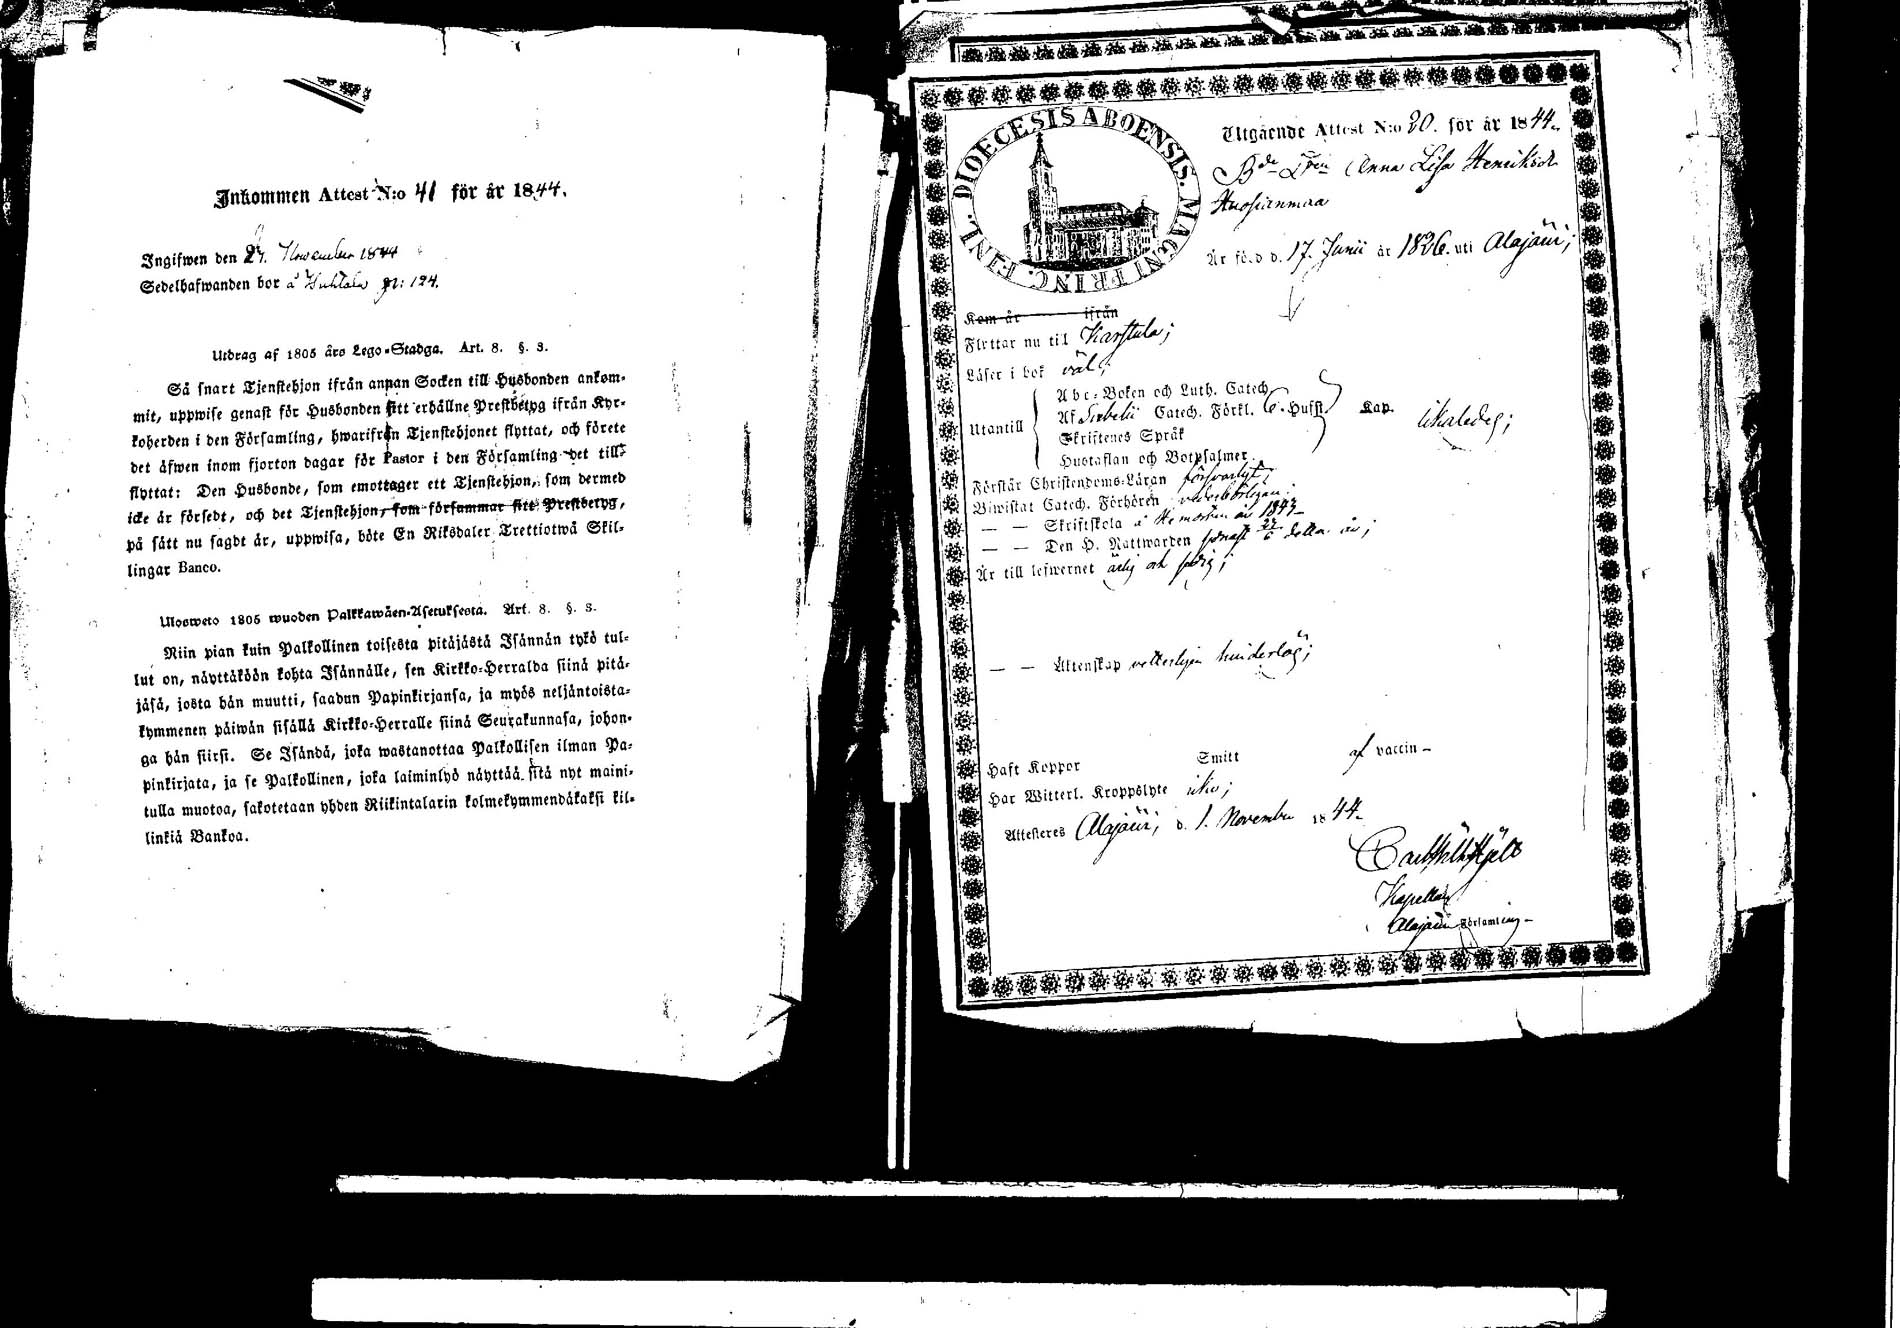 Inkommen Attest N:o 41 för år 1844.
Ingifwen den 24. November 1844
Sedelhafwanden bor å Huhtala N: 124.
Utdrag af 1805 års Lego-Stadga. Art. 8. §. 3.
Så snart Tjenstehjon ifrån annan Socken till Husbonden ankom-
mit, uppwise genast för Husbonden sitt erhållne Prestbetyg ifrån Kyr-
koherden i den Församling, hwarifrån Tjenstehjonet flyttat, och förete
det äfwen inom fjorton dagar för Pastor i den Församling det till-
flyttat: Den Husbonde, som emottager ett Tjenstehjon, som dermed
icke är försedt, och det Tjenstehjon, som försummar sitt Prestbetyg,
på sätt nu sagdt är, uppwisa, böte En Riksdaler Trettiotwå Skil-
lingar Banco.
Ulosweto 1805 wuoden Palkkawäen-Asetuksesta. Art. 8. §. 3.
Niin pian kuin Palkollinen toisesta pitäjästä Isännän tykö tul-
lut on, näyttäköön kohta Isännälle, sen Kirkko-Herralda siinä pitä-
jäsä, josta hän muutti, saadun Papinkirjansa, ja myös neljäntoista-
kymmenen päiwän sisällä Kirkko-Herralle siinä Seurakunnasa, johon-
ga hän siirsi. Se Isändä, joka wastanottaa Palkollisen ilman Pa-
pinkirjata, ja se Palkollinen, joka laiminlyö näyttää sitä nyt maini-
tulla muotoa, sakotetaan yhden Riikintalarin kolmekymmendäkaksi kil-
linkiä Bankoa.
DIOECESIS ABOENSIS. MAGNI PRINC. FINL.
Utgående Attest N:o 20. för år 1844.
Bde Dren Anna Lisa Henriksdr
Huosianmaa
Är född d. 17. Junii år 1826. uti Alajärvi;
Kom år ifrån
Flyttar nu till Karstula;
Läser i bok väl;
Utantill
Abc-Boken och Luth. Catech.
Af Svebelii Catech. Förkl. 6. Hufst. Kap. likaledes;
Skriftenes Språk
Hustaflan och Botpsalmer.
Förstår Christendoms-Läran försvarligt;
Biwistat Catech. Förhören vederbörligen;
— — Skriftskola å Hemorten år 1843
— — Den H. Nattwarden senast 22/6 detta år;
Är till lefwernet ärlig och sedig;
— — Äktenskap vetterligen hinderlös;
Haft Koppor Smitt af vaccin
Har Witterl. Kroppslyte icke;
Attesteres Alajärvi, d. 1. November 1844.
Kapellan
Alajärvi Församling